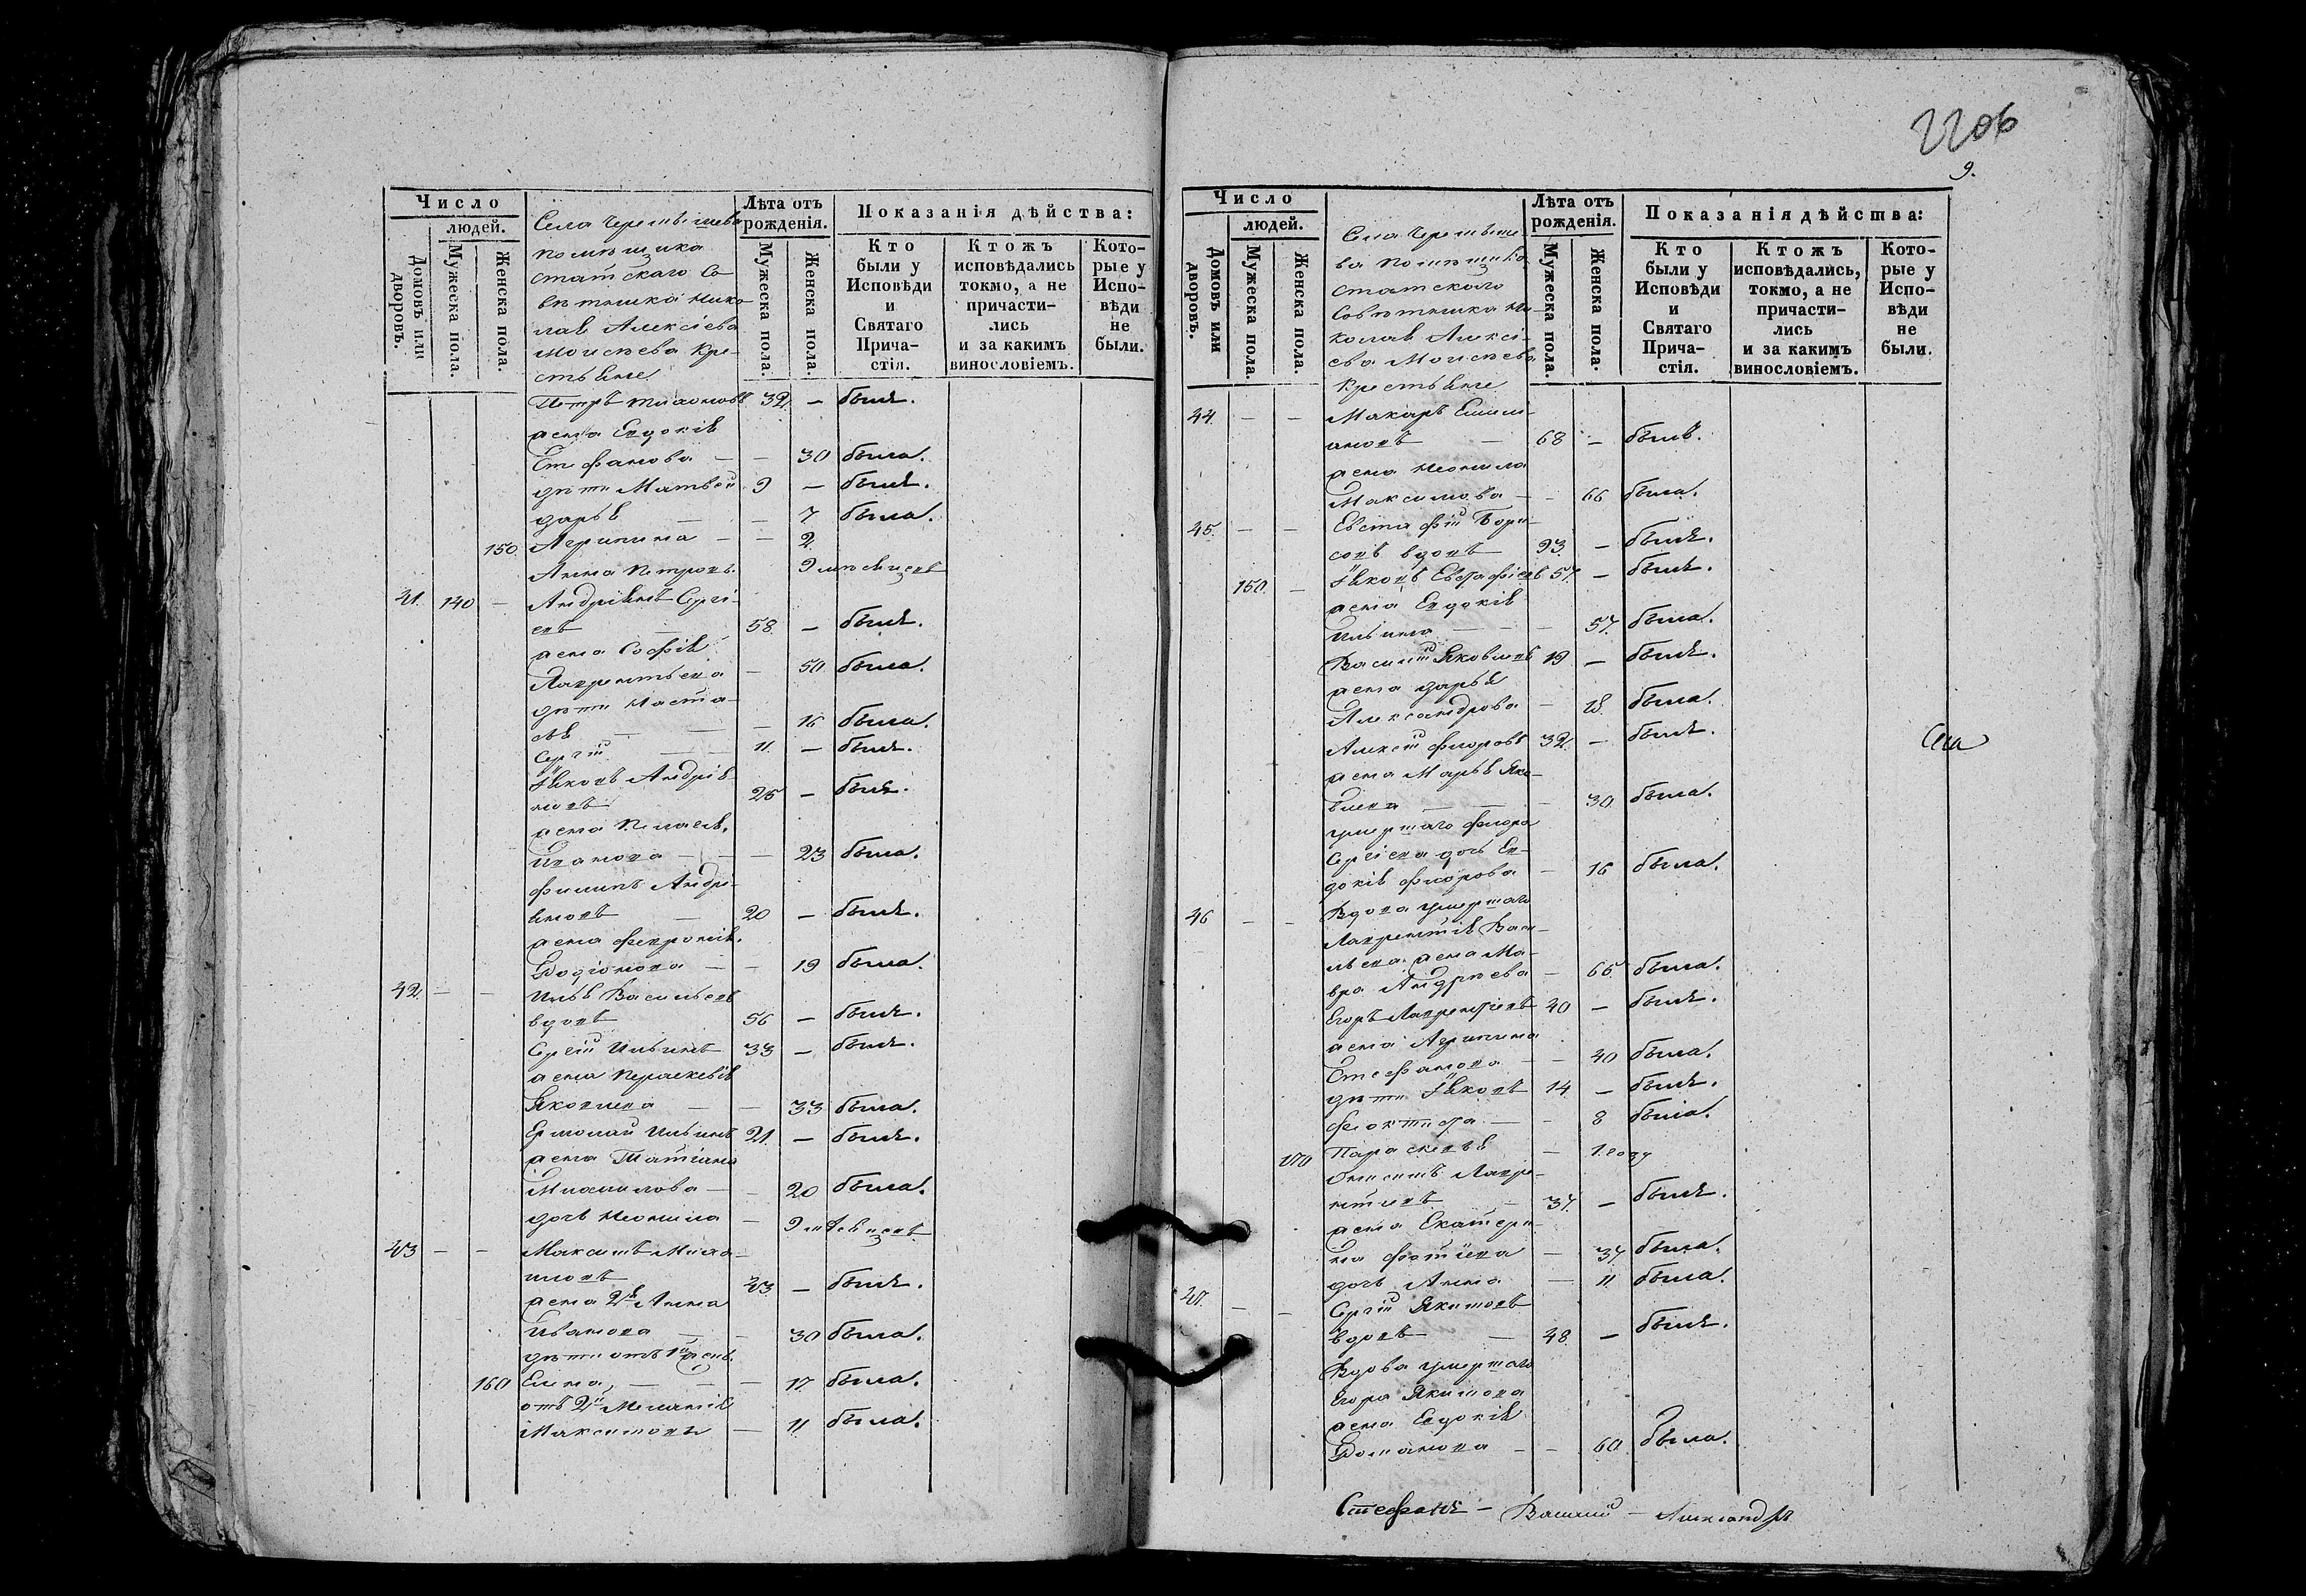 Число
людей.
Домовъ или дворовъ.
Мужеска пола.
Женска пола.
Села Черемышева
помѣщика
статскаго Со-
вѣтника Нико-
лая Алексіева
Моисѣева кре-
стьяне
Лѣта отъ
рожденія.
Мужеска пола.
Женска пола.
Показанія дѣйства:
Кто
были у
Исповѣди
и
Святаго
Прича-
стія.
Ктожъ
исповѣдались
токмо, а не
причасти-
лись
и за какимъ
винословіемъ.
Кото-
рые у
Испо-
вѣди
не
были.
Петръ Тихоновъ 32. – былъ.
жена Евдокія
Стефанова – – 30 была.
дѣти Матвей 9 – былъ.
Дарья – – 7 была.
150. Агрипина – – 2.
Анна Петров. 9 мѣсяцевъ
41. 140 – Андріянъ Сергі-
евъ – 58. – былъ.
жена Софія
Лаврентьева – 50 была.
дѣти Наста-
сья – – – 16 была.
Сергій – – 11. – былъ.
Яковъ Андрія-
новъ 25 – былъ.
жена Пелагея.
Иванова – – – 23 была.
Филипъ Андрі-
яновъ – 20 – былъ.
жена Феврония.
Родіонова – – 19 была.
42. – – Илья Васильевъ
вдовъ 56 – былъ.
Сергій Ильинъ 33 – былъ.
жена Параскевія
Яковлева – – 33 была.
Ермолай Ильинъ 21. – былъ.
жена Татіана
Михаилова – – 20 была.
дочь Неонила – 9 мѣсяцевъ
43 – – Максимъ Миха-
иловъ 43. – былъ.
жена 2я Анна
Иванова – – 30 была.
дѣти отъ 1й жен.
160 Елена, – – – 17. была.
отъ 2й Меланія
Максимовы – 11 была.
9.
Число
людей.
Домовъ или дворовъ.
Мужеска пола.
Женска пола.
Села Черемыше-
ва помѣщика
статскаго
Совѣтника Ни-
колая Алексі-
ева Моисѣева
крестьяне
Лѣта отъ
рожденія.
Мужеска пола.
Женска пола.
Показанія дѣйства:
Кто
были у
Исповѣди
и
Святаго
Прича-
стія.
Ктожъ
исповѣдались,
токмо, а не
причасти-
лись
и за какимъ
винословіемъ.
Кото-
рые у
Испо-
вѣди
не
были.
44. – – Макаръ Емили-
ановъ – 68 – былъ.
жена Неонила
Максимова – – 66 была.
45. – – Евстафій Бори-
совъ вдовъ 93. – былъ.
150. – Яковъ Евстафіевъ 57. – былъ.
жена Евдокія
Ильина – – – 57. была.
Василій Яковлевъ 19 – былъ.
жена Дарья
Александрова – 18. была.
Алексій Флоровъ 32. – былъ.
жена Марья Яко-
влева – – – 30. была.
умершаго Флора
Сергіева дочь Ев-
докія Флорова – 16 была.
46 – – Вдова умершаго
Лаврентія Васи-
льева жена Ма-
вра Андрѣева – 65 была.
Егоръ Лаврентіевъ 40 – былъ.
жена Агрипина
Стефанова – – 40 была.
дѣти Яковъ 14 – былъ.
Феоктиста – – 8 была.
170 Параскевья – 1. году
Онисимъ Лавре-
нтіевъ – 37. – былъ.
жена Екатери-
на Фотіева – 37. была.
дочь Анна – 11 была.
47. – – Сергій Якимовъ
вдовъ – 48. – былъ.
Вдова умершаго
Егора Якимова
жена Евдокія
Романова – – 60. была.
Стефанъ – Василій – Александръ